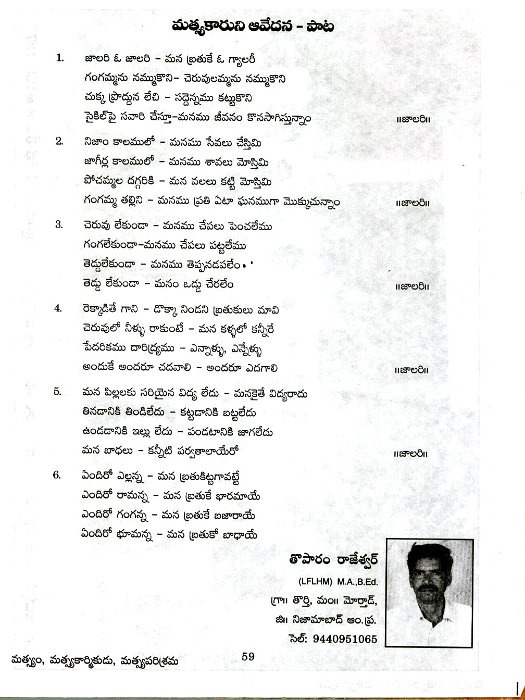 మత్స్యకారుని ఆవేదన - పాట
1. జాలరి ఓ జాలరి - మన బ్రతుకే ఓ గ్యాలరీ
గంగమ్మను నమ్ముకొని- చెరువులమ్మను నమ్ముకొని
చుక్క ప్రొద్దున లేచి - సద్దెన్నము కట్టుకొని
సైకిల్‌పై సవారి చేస్తూ-మనము జీవనం కొనసాగిస్తున్నాం ॥జాలరి॥
2. నిజాం కాలములో - మనము సేవలు చేస్తిమి
జాగీర్ల కాలములో - మనము శావలు మోస్తిమి
పోచమ్మల దగ్గరికి - మన వలలు కట్టి మోస్తిమి
గంగమ్మ తల్లిని - మనము ప్రతి ఏటా ఘనముగా మొక్కుచున్నాం ॥జాలరి॥
3. చెరువు లేకుండా - మనము చేపలు పెంచలేము
గంగలేకుండా-మనము చేపలు పట్టలేము
తెడ్డులేకుండా - మనము తెప్పనడపలేం
తెడ్డు లేకుండా - మనం ఒడ్డు చేరలేం ॥జాలరి॥
4. రెక్కాడితే గాని - డొక్కా నిండని బ్రతుకులు మావి
చెరువులో నీళ్ళు రాకుంటే - మన కళ్ళలో కన్నీరే
పేదరికము దారిద్ర్యము - ఎన్నాళ్ళు, ఎన్నేళ్ళు
అందుకే అందరూ చదవాలి - అందరూ ఎదగాలి ॥జాలరి॥
5. మన పిల్లలకు సరియైన విద్య లేదు - మనకైతే విద్యరాదు
తినడానికి తిండిలేదు - కట్టడానికి బట్టలేదు
ఉండడానికి ఇల్లు లేదు - పండటానికి జాగలేదు
మన బాధలు - కన్నీటి పర్వతాలాయేరో ॥జాలరి॥
6. ఏందిరో ఎల్లన్న - మన బ్రతుకిట్లగావట్టే
ఎందిరో రామన్న - మన బ్రతుకే భారమాయే
ఎందిరో గంగన్న - మన బ్రతుకే బజారాయే
ఏందిరో భూమన్న - మన బ్రతుకో బాధాయే
తొపారం రాజేశ్వర్
(LFLHM) M.A.,B.Ed.
గ్రా॥ తొర్తి, మం॥ మోర్తాడ్,
జి॥ నిజామాబాద్ ఆం.ప్ర.
సెల్: 9440951065
మత్స్యం, మత్స్యకార్మికుడు, మత్స్యపరిశ్రమ 59